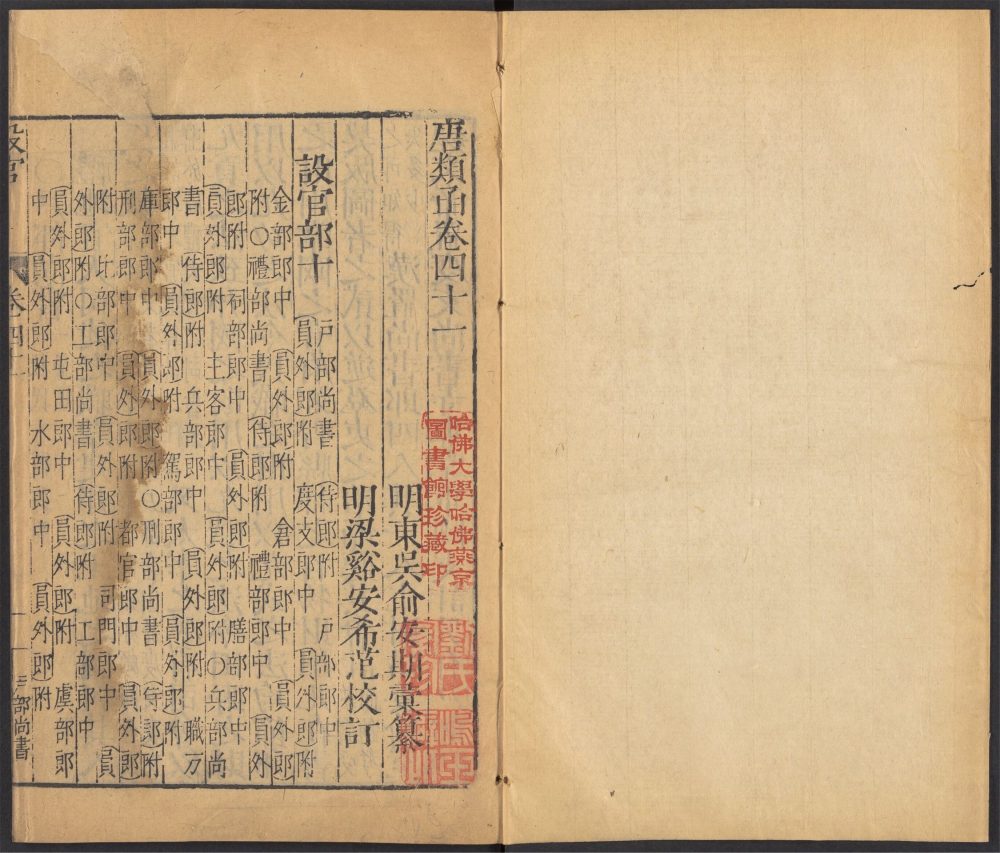 唐類函卷四十一
明東吳俞安期彙纂
明梁谿安希范校訂
設官部十
戶部尚書 侍郎附 戶部郎中
員外郎附 度支郎中 員外郎附
金部郎中 員外郎附 倉部郎中 員外郎
附〇禮部尚書 侍郎附 禮部郎中 員外
郎附 祠部郎中 員外郎附 膳部郎中
員外郎附 主客郎中 員外郎附〇兵部尚
書 侍郎附 兵部郎中 員外郎附 職方
郎中 員外郎附 駕部郎中 員外郎附
庫部郎中 員外郎附〇刑部尚書 侍郎附
刑部郎中 員外郎附 都官郎中 員外郎
附 比部郎中 員外郎附 司門郎中 員
外郎附〇工部尚書 侍郎附 工部郎中
員外郎附 屯田郎中 員外郎附 虞部郎
中 員外郎附 水部郎中 員外郎附
設官 卷四十一 部尚書
哈佛大學哈佛燕京
圖書館珍藏印